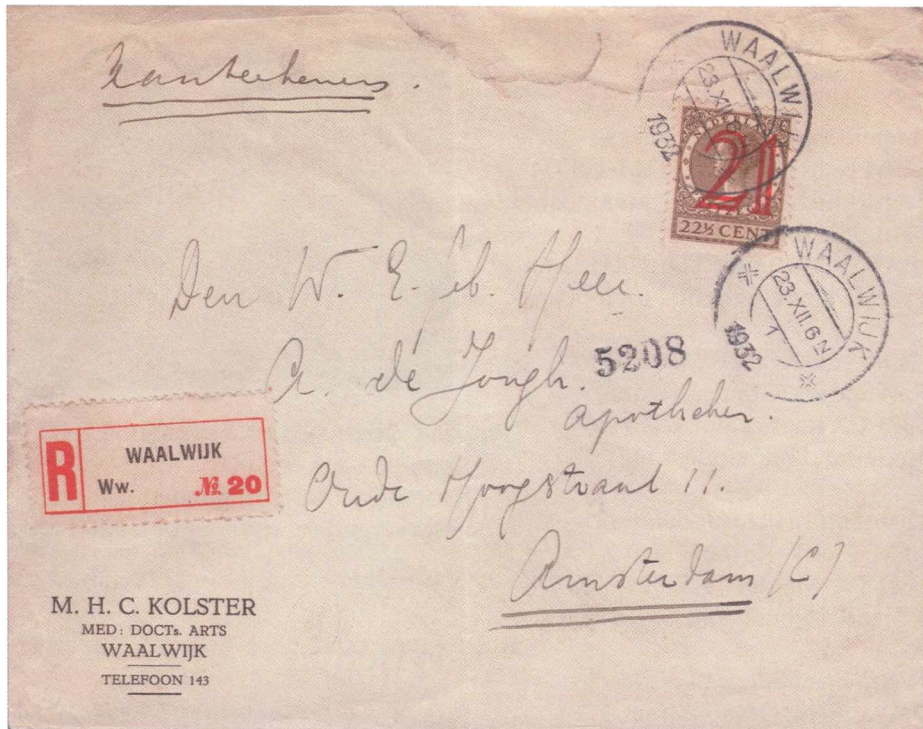 Aanteekenen.
WAALWIJK
23.XII.
1932
NEDERLAND
21
22½ CENT
WAALWIJK
23.XII.6N
1
1932
Den W. E. Heer.
A. de Jongh.
5208
apotheker.
Oude Hoogstraat 11.
Amsterdam (C)
R
WAALWIJK
Ww. № 20
M. H. C. KOLSTER
MED: DOCTs. ARTS
WAALWIJK
TELEFOON 143